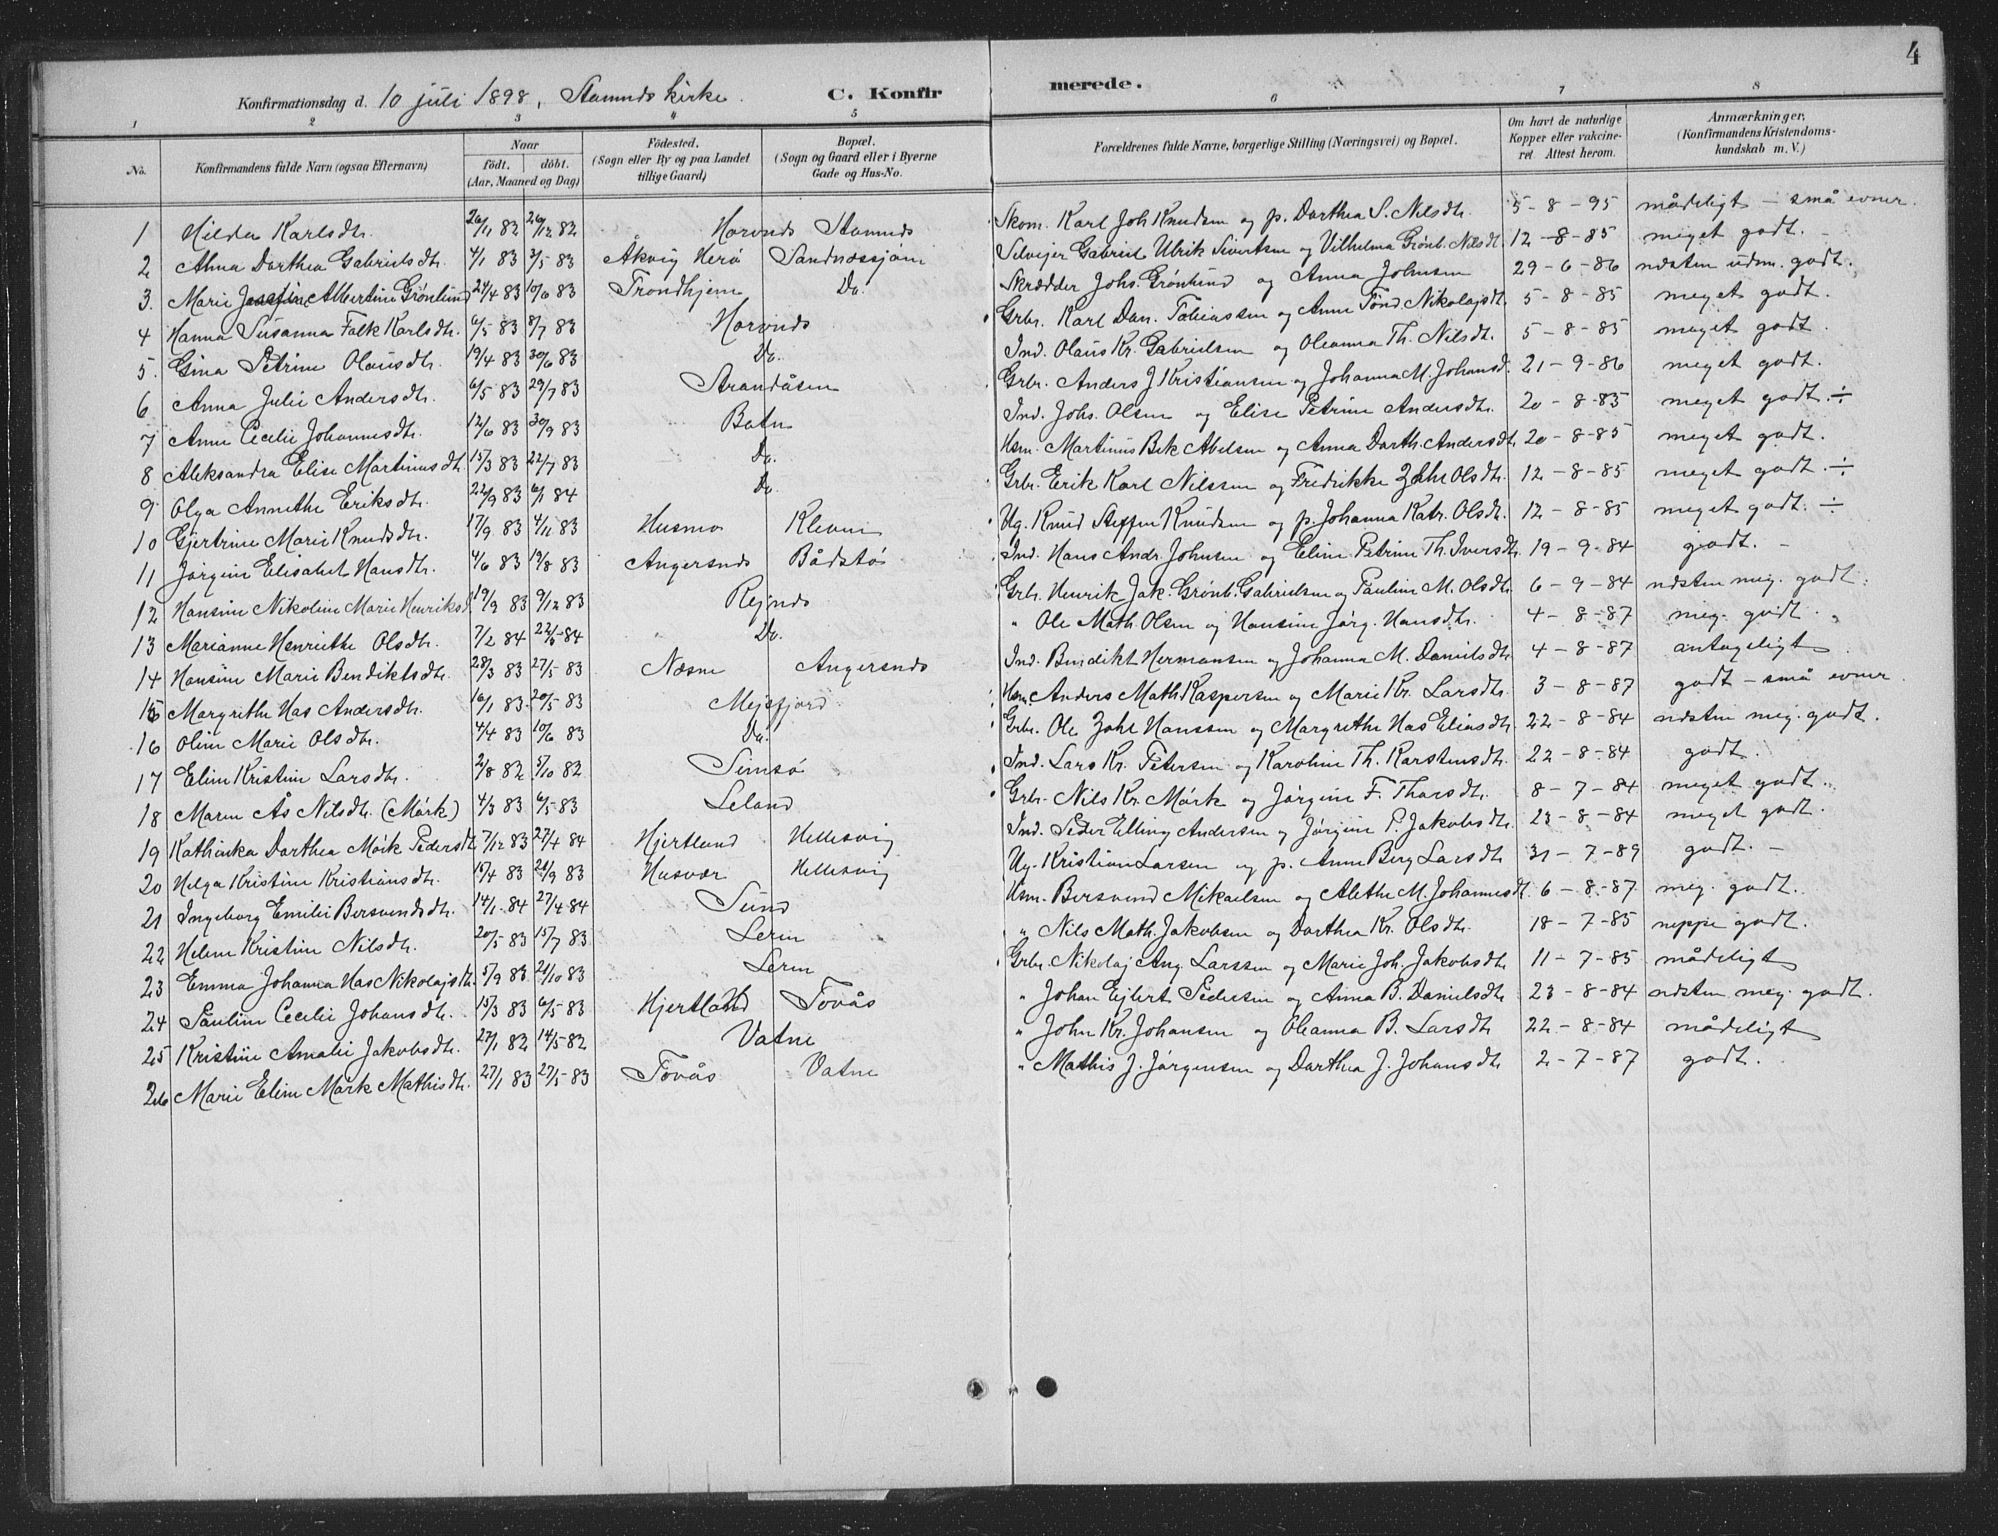 4
Konfirmationsdag d. 10 juli 1898, Stamnds kirke. C. Konfirmerede.
1 2 3 4 5 6 7 8
No. Konfirmandens fulde Navn (ogsaa Efternavn) Naar født. døbt. (Aar, Maaned og Dag) Fødested. (Sogn eller By og paa Landet tillige Gaard) Bopæl. (Sogn og Gaard eller i Byerne Gade og Hus-No. Forældrenes fulde Navne, borgerlige Stilling (Næringsvei) og Bopæl. Om havt de naturlige Kopper eller vakcineret. Attest herom. Anmærkninger, (Konfirmandens Kristendomskundskab m. V.)
1 Hilda Karlsdtr. 26/11 82 26/12 82 Horvnds Stamnds Skom. Karl Joh Knudsen og p. Dorthea S. Nilsdtr. 5-8-95 mådeligt - små evner.
2 Alma Dorthea Gabrielsdtr. 4/1 83 3/5 83 Åkvig Herø Sandnæssjøen Selvejer Gabriel Ulrik Sivertsen og Vilhelma Grønb. Nilsdt. 12-8-85 meget godt.
3. Marie Josefine Albertine Grønlund 24/4 83 10/6 83 Trondhjem Do. Skrædder Johs. Grønlund og Anna Johnsen 29-6-86 næsten udm. godt.
4 Hanna Susanna Falk Karlsdtr. 6/5 83 8/7 83 Horvnds Grbr. Karl Dan. Tobiassen og Anne Tønd. Nikolajsdt. 5-8-85 meget godt.
5. Gina Petrine Olausdtr. 19/4 83 30/6 83 Do. Ind. Olaus Kr. Gabrielsen og Oleanna Th. Nilsdt. 5-8-85 meget godt.
6 Anna Julie Andersdtr. 6/5 83 29/7 83 Strandåsen Grbr. Anders J Kristiansen og Johanna M. Johansd. 21-9-86 meget godt.
7 Anne Cecilie Johannesdtr. 12/6 83 30/9 83 Botn Ind. Johs. Olsen og Elise Petrine Andersdtr. 20-8-85 meget godt. ÷
8 Aleksandra Elise Martinusdtr. 15/3 83 22/7 83 Do. Hsm. Martinus Bek Abelsen og Anna Dorth. Andersdt. 20-8-85 meget godt.
9 Olga Annethe Eriksdtr. 22/9 83 6/1 84 Do. Grbr. Erik Karl Nilssen og Fredrikke Zahl Olsdtr. 12-8-85 meget godt. ÷
10 Gjertrine Marie Knudsdtr. 17/9 83 4/11 83 Husmo Kleven Ug. Knud Steffen Knudsen og p. Johanna Katr. Olsdt. 12-8-85 meget godt. ÷
11 Jørgine Elisabet Hansdtr. 4/6 83 19/8 83 Angersnds Bådstø Ind. Hans Andr. Johnsen og Eline Petrine Th. Iversdt. 19-9-84 godt. -
12 Hansine Nikoline Marie Henriksd. 19/9 83 9/12 83 Rejnds Grbr. Henrik Jak. Grønb. Gabrielsen og Pauline M. Olsdtr. 6-9-84 næsten meg. godt.
13 Marianne Henriethe Olsdtr. 7/2 84 22/5-84 Do. " Ole Math. Olsen og Hansine Jørg. Hansdtr. 4-8-87 meg. godt.
14 Hansine Marie Bendiktsdtr. 28/3 83 27/5-83 Næsne Angersnds Ind. Bendikt Hermansen og Johanna M. Danielsdtr. 4-8-87 antageligt
15 Margrethe Has Andersdtr. 16/1 83. 20/5-83 Mejsfjord Hsm. Anders Math Kaspersen og Marie Kr. Larsdtr. 3-8-87 godt - små evner.
16 Oline Marie Olsdtr. 4/4 83 10/6 83 Do. Grbr. Ole Zahl Hanssen og Margrethe Has Eliasdtr. 22-8-84 næsten meg. godt.
17 Eline Kristine Larsdtr. 2/8 82 5/10 82 Simsø Ind. Lars Kr. Petersen og Karoline Th. Karstensdtr. 22-8-84 godt.
18 Maren Ås Nilsdtr. (Mørk) 4/3 83 6/5-83 Leland Grbr. Nils Kr. Mørk og Jørgine F. Thorsdtr. 8-7-84 meget godt.
19 Kathinka Dorthea Mørk Pedersdt. 7/12 83 27/4 84 Hjertland Hellesvig Ind. Peder Elling Andersen og Jørgine P. Jakobsdtr. 23-8-84 meget godt
20 Helga Kristine Kristiansdtr. 15/4 83 21/9 83 Husvær Hellesvig Ug. Kristian Larsen og p. Anne Berg Larsdtr 31-7-89 godt. -
21 Ingeborg Emilie Bersvendsdtr. 14/1-84 27/4 84 Sund Hsm. Bersvend Mikaelsen og Alethe M. Johannesdt. 6-8-87 meg. godt.
22 Helene Kristine Nilsdtr. 20/5 83 15/7 83 Lerin " Nils Math. Jakobsen og Dorthea Kr. Olsdtr. 18-7-85 neppe godt.
23 Emma Johanna Has Nikolajsdt. 5/9 83 21/10 83 Lerin Grbr. Nikolaj Aug. Larssen og Marie Joh. Jakobsdtr 11-7-85 mådeligt
24 Pauline Cecilie Johansdtr. 15/3 83 6/5-83 Hjertland Tovås " Johan Ejlert Pedersen og Anna B. Danielsdtr 23-8-84 næsten meg. godt.
25 Kristine Amalie Jakobsdtr. 27/1 82 14/5-82 Vatne " John Kr. Johansen og Oleanna B. Larsdtr 22-8-84 mådeligt
26 Marie Eline Mørk Mathisdtr. 27/1 83 27/5-83 Tovås Vatne " Mathis J. Jørgensen og Dorthea J. Johansdtr 2-7-87 godt.